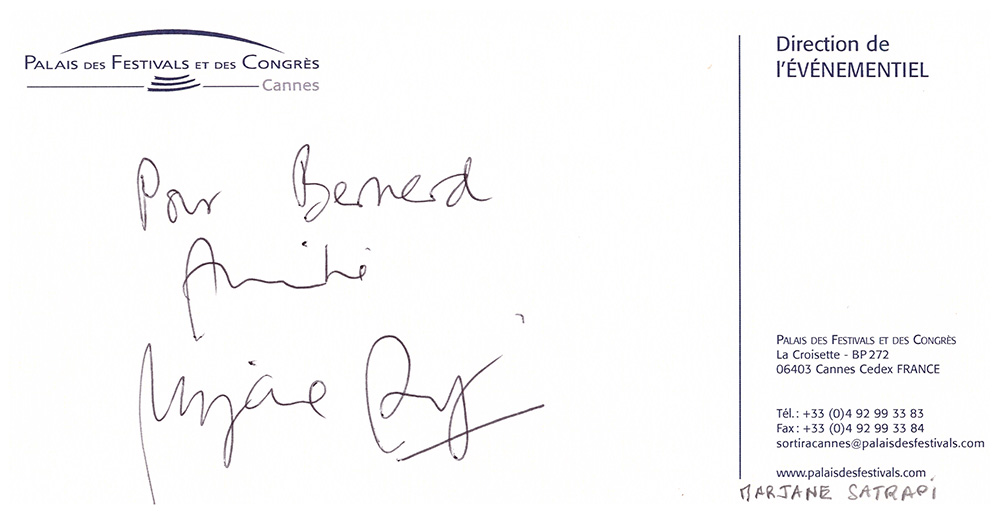 PALAIS DES FESTIVALS ET DES CONGRÈS
Cannes
Direction de
l'ÉVÉNEMENTIEL
Pour Bernard
Amitié
Marjane
PALAIS DES FESTIVALS ET DES CONGRÈS
La Croisette - BP 272
06403 Cannes Cedex FRANCE
Tél. : +33 (0)4 92 99 33 83
Fax : +33 (0)4 92 99 33 84
sortiracannes@palaisdesfestivals.com
www.palaisdesfestivals.com
MARJANE SATRAPI